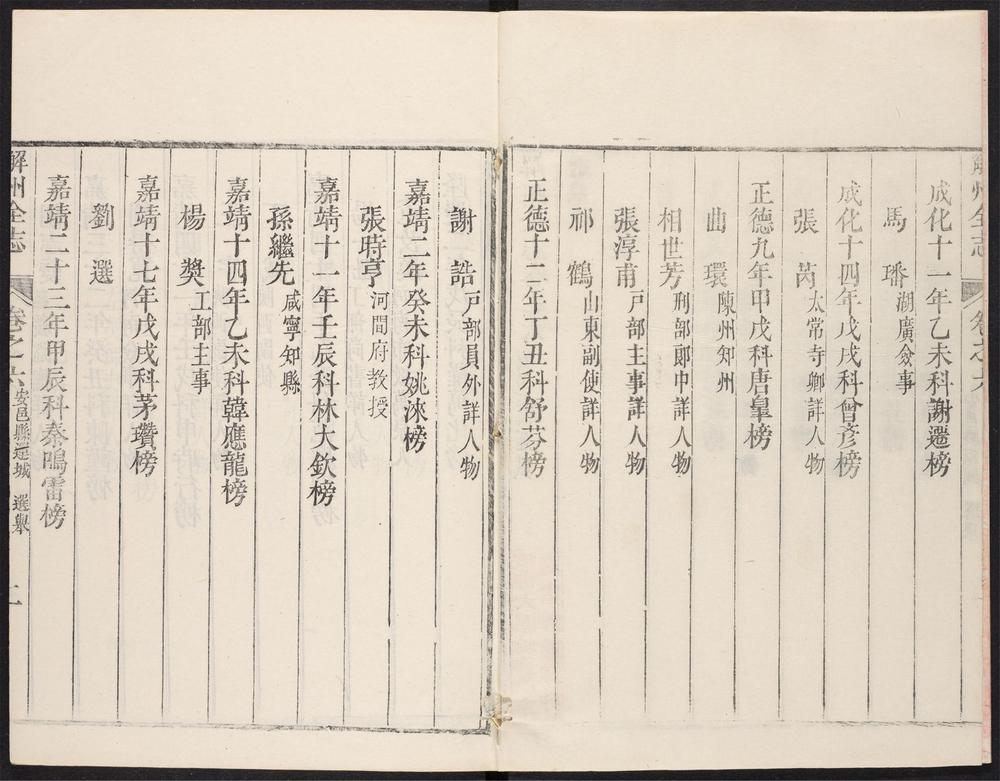 解州全志 卷之六
成化十一年乙未科謝遷榜
馬璠 湖廣僉事
成化十四年戊戌科曾彥榜
張芮 太常寺卿詳人物
正德九年甲戌科唐皐榜
曲環 陳州知州
相世芳 刑部郎中詳人物
張淳甫 戸部主事詳人物
祁鶴 山東副使詳人物
正德十二年丁丑科舒芬榜
謝誥 戸部員外詳人物
嘉靖二年癸未科姚淶榜
張時亨 河間府教授
嘉靖十一年壬辰科林大欽榜
孫繼先 咸寧知縣
嘉靖十四年乙未科韓應龍榜
楊獎 工部主事
嘉靖十七年戊戌科茅瓚榜
劉選
嘉靖二十三年甲辰科秦鳴雷榜
解州全志 卷之六 安邑縣運城 選舉 二